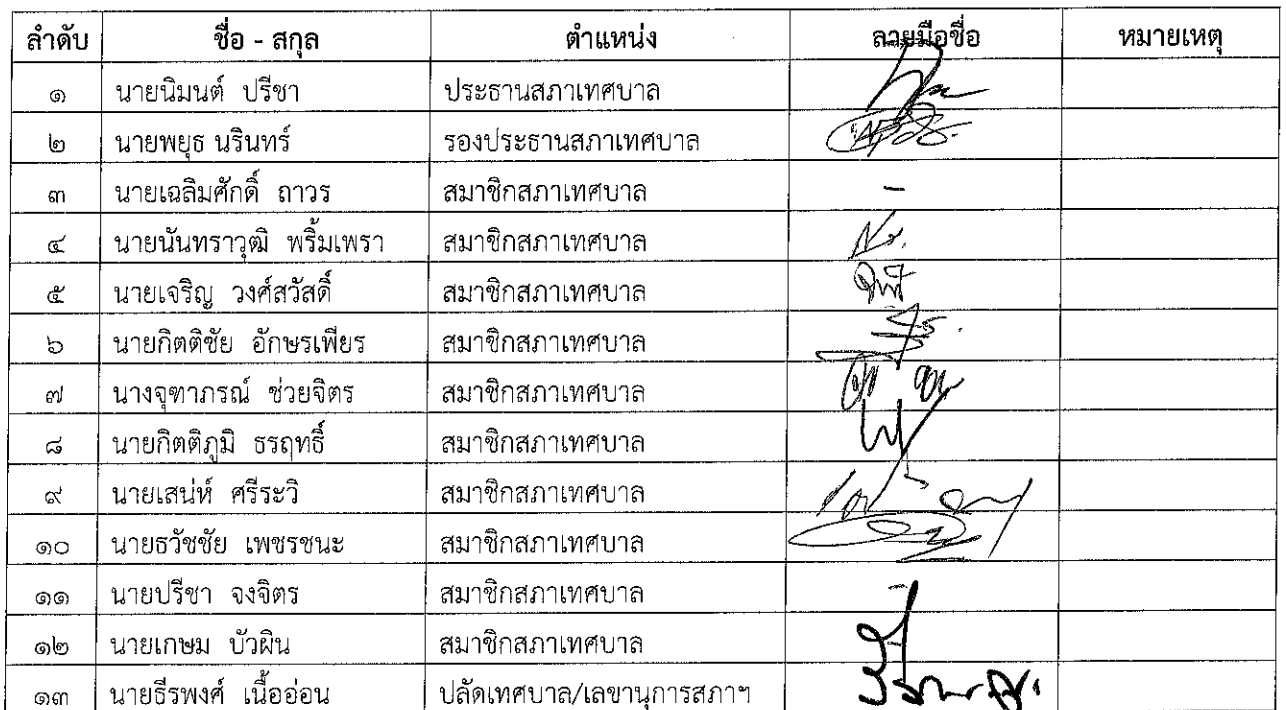 ลำดับ ชื่อ - สกุล ตำแหน่ง ลายมือชื่อ หมายเหตุ
๑ นายนิมนต์ ปรีชา ประธานสภาเทศบาล
๒ นายพยุธ นรินทร์ รองประธานสภาเทศบาล
๓ นายเฉลิมศักดิ์ ถาวร สมาชิกสภาเทศบาล -
๔ นายนันทราวุฒิ พริ้มเพรา สมาชิกสภาเทศบาล
๕ นายเจริญ วงศ์สวัสดิ์ สมาชิกสภาเทศบาล
๖ นายกิตติชัย อักษรเพียร สมาชิกสภาเทศบาล
๗ นางจุฑาภรณ์ ช่วยจิตร สมาชิกสภาเทศบาล
๘ นายกิตติภูมิ ธรฤทธิ์ สมาชิกสภาเทศบาล
๙ นายเสน่ห์ ศรีระวิ สมาชิกสภาเทศบาล
๑๐ นายธวัชชัย เพชรชนะ สมาชิกสภาเทศบาล
๑๑ นายปรีชา จงจิตร สมาชิกสภาเทศบาล -
๑๒ นายเกษม บัวผิน สมาชิกสภาเทศบาล
๑๓ นายธีรพงศ์ เนื้ออ่อน ปลัดเทศบาล/เลขานุการสภาฯ